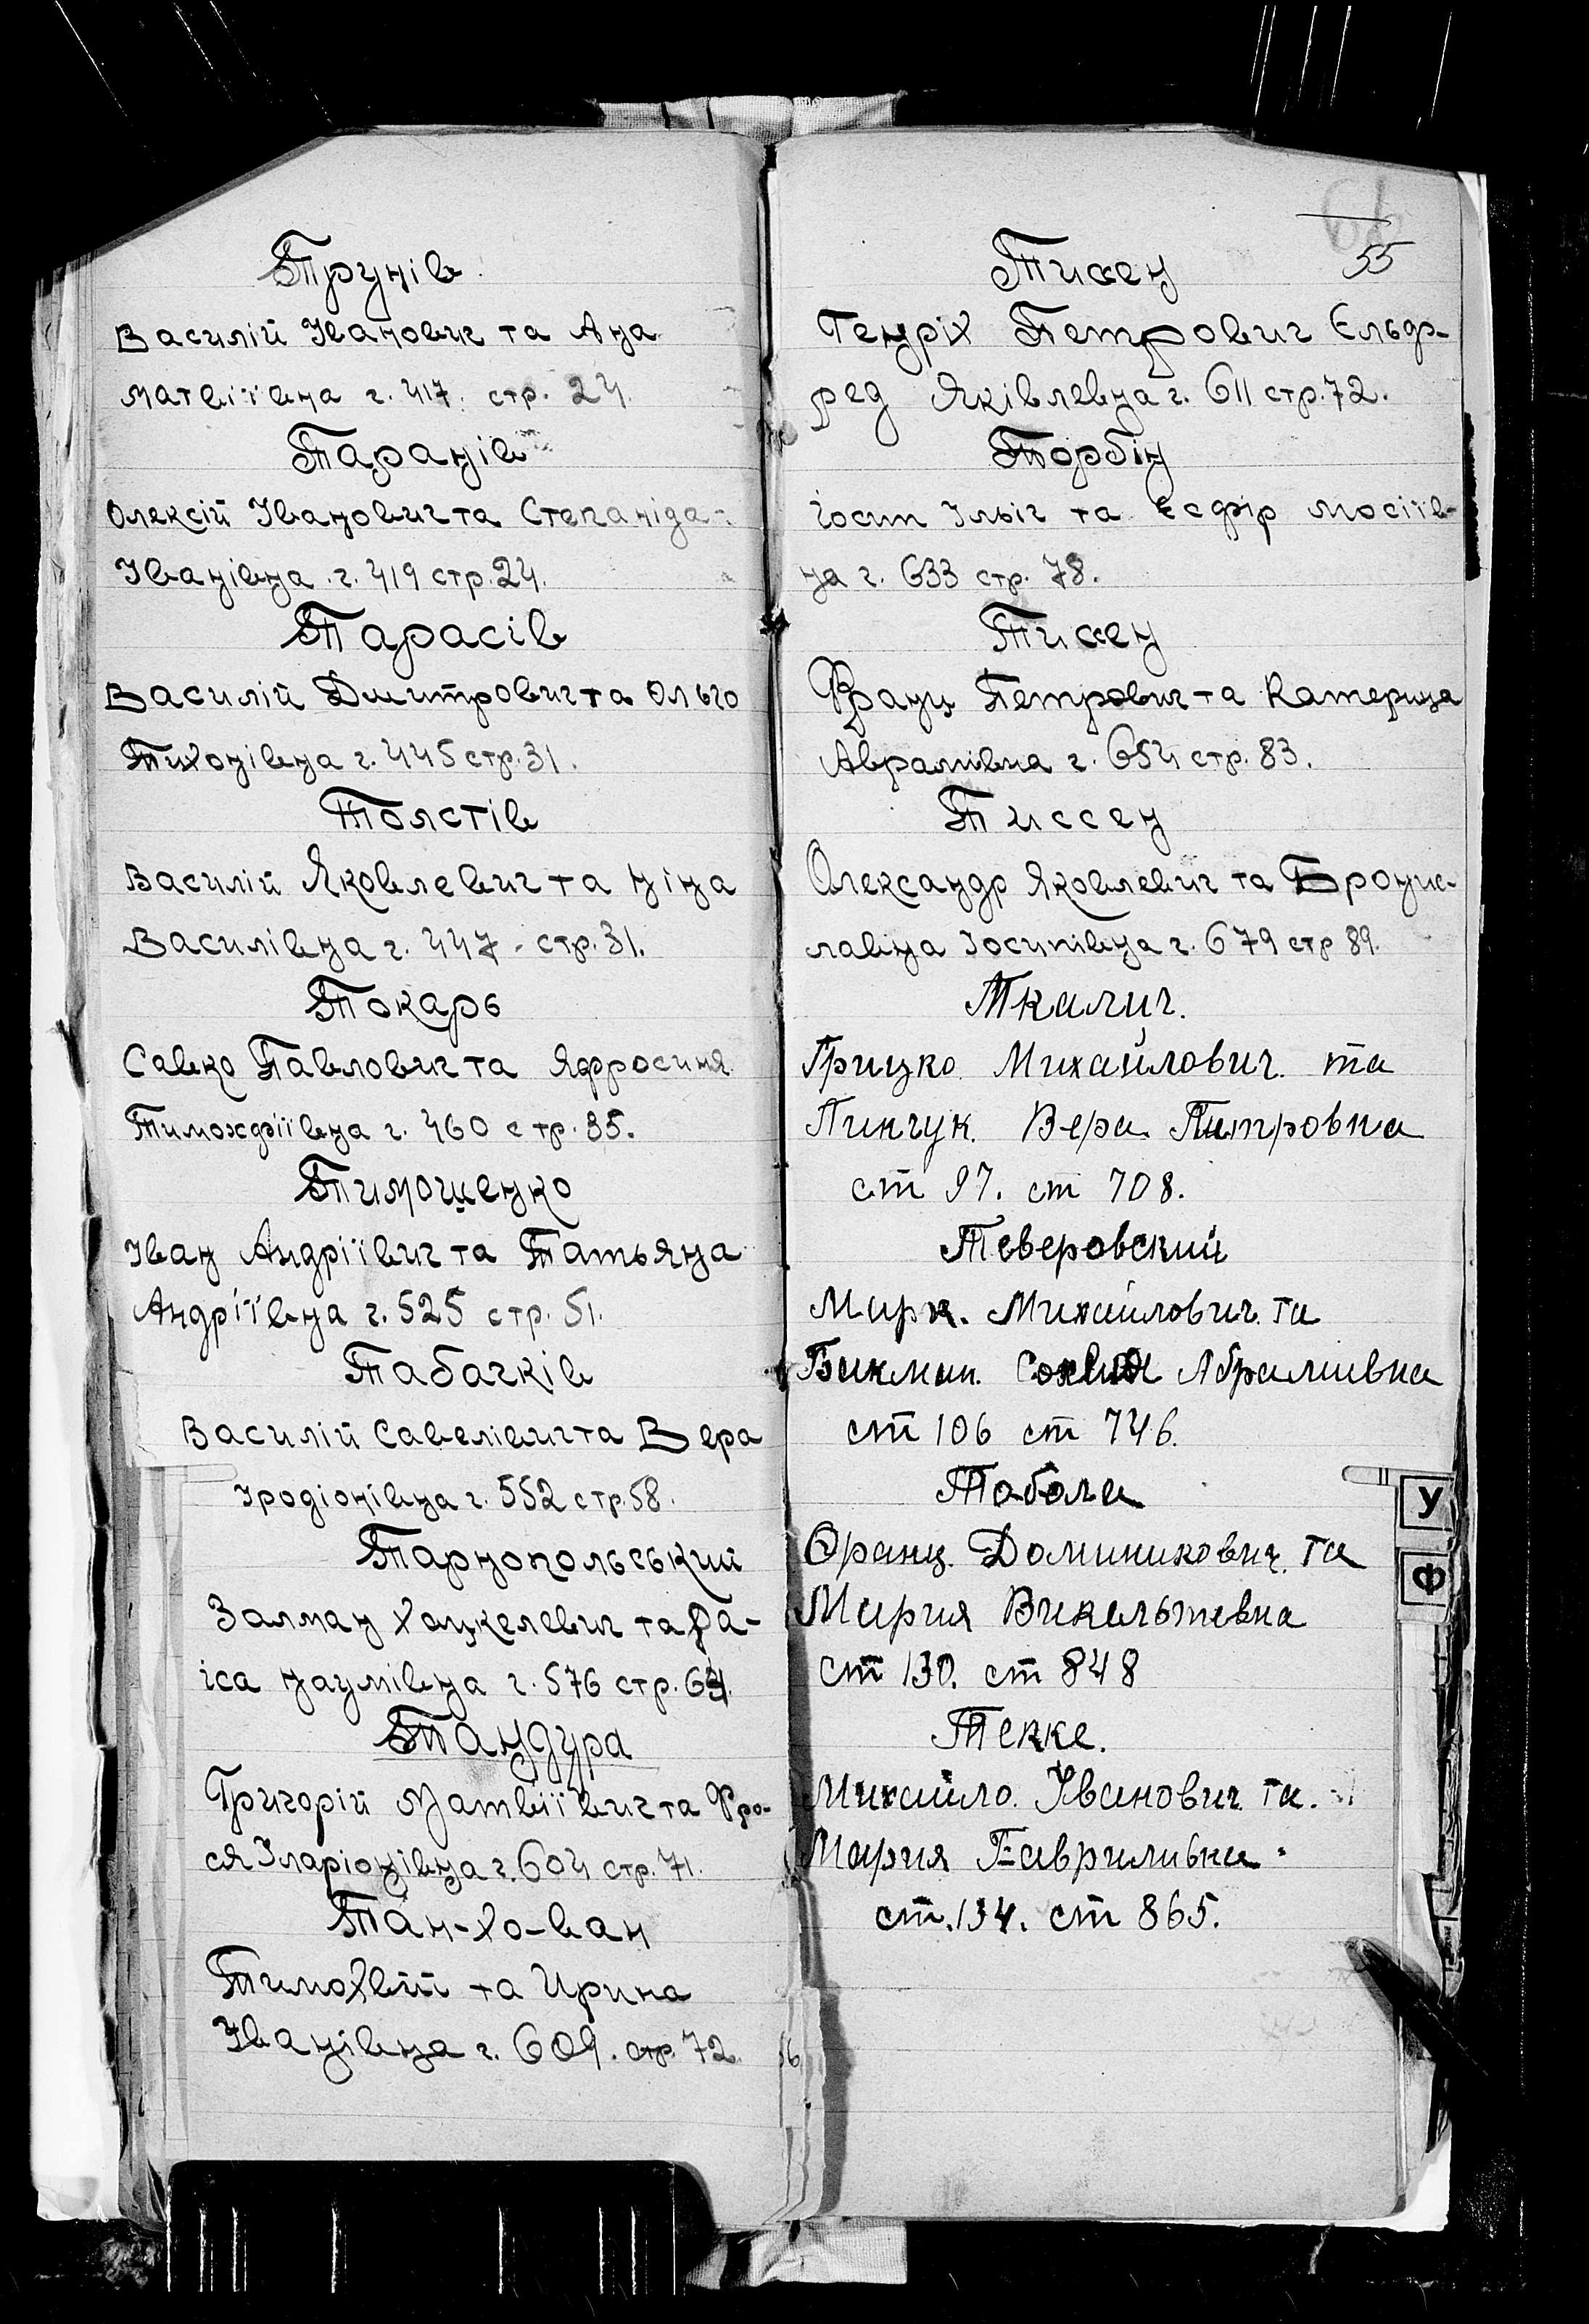 Трунів
Василій Іванович та Ана
Матвіївна г. 417. стр. 24.
Таранів
Олексій Іванович та Степаніда
Іванівна. г. 419 стр. 24.
Тарасів
Василій Дмитрович та Ольго
Тихонівна г. 445 стр. 31.
Толстів
Василій Яковлевич та Ніна
Василівна г. 447 - стр. 31.
Токарь
Савко Павлович та Яфросиня
Тимохфіївна г. 460 стр. 35.
Тимошенко
Іван Андріївич та Татьяна
Андріївна г. 525 стр. 51.
Табачків
Василій Савелівич та Вера
Іродіонівна г. 552 стр 58.
Тарнопольський
Залман Хацкелевич та Ра-
іса Наумівна г. 576 стр. 64.
Тандура
Григорій Матвіївич та Фро-
ся Іларіонівна г. 604 стр. 71.
Тан-Хо-Ван
Тимохвій та Ирина
Іванівна г. 609. стр. 72.
55
Тисен
Генріх Петрович Єльф-
ред Яківлевна г. 611 стр. 72.
Торбін
Іосип Ільіч та Есфір Мосіїв-
на г. 633 стр. 78.
Тисен
Франц Петрович та Катерина
Аврамівна г. 654 стр. 83.
Тиссен
Олександр Яковлевич та Бронис-
лавна Іосипівна г. 679 стр 89.
Ткалич.
Грицко Михайлович. та
Пинчук. Вера Питровна
ст 97. ст 708.
Теверовский
Марк. Михайлович. та
Бикман. Абрамивна
ст 106 ст 746.
Табола
Франц. Доминикович. та
Мария Викельтевна
ст 130. ст 848
Текке.
Михайло. Иванович та.
Мария Гавриливна.
ст. 134. ст 865.
У
Ф